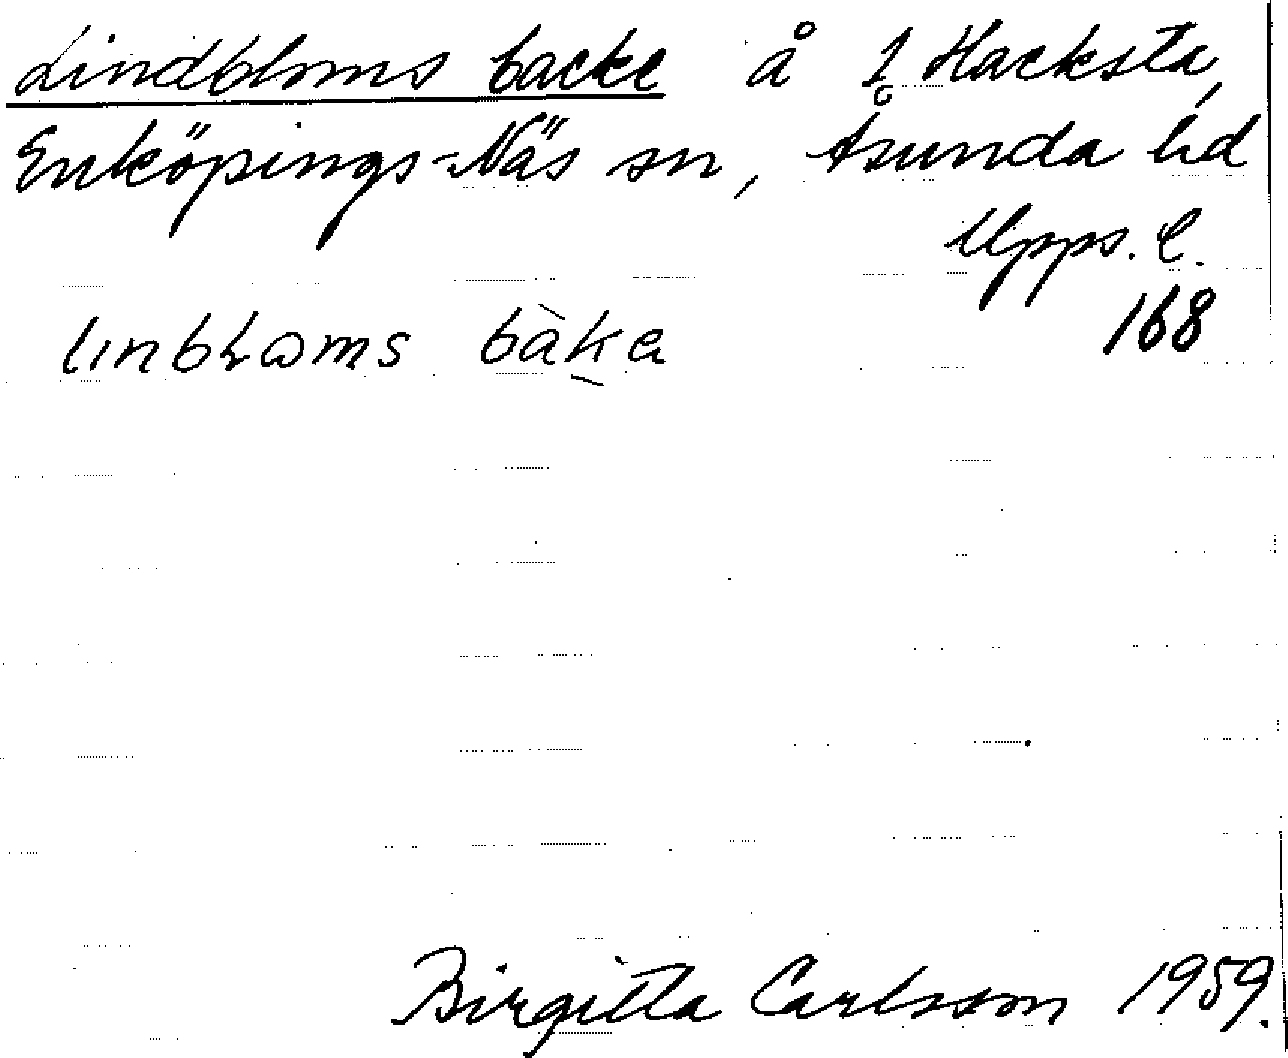 Lindbloms backe å 1 Hacksta,
Enköpings-Näs sn, Åsunda hd
Upps. l.
168
linbłωms bàka
Birgitta Carlsson 1959.